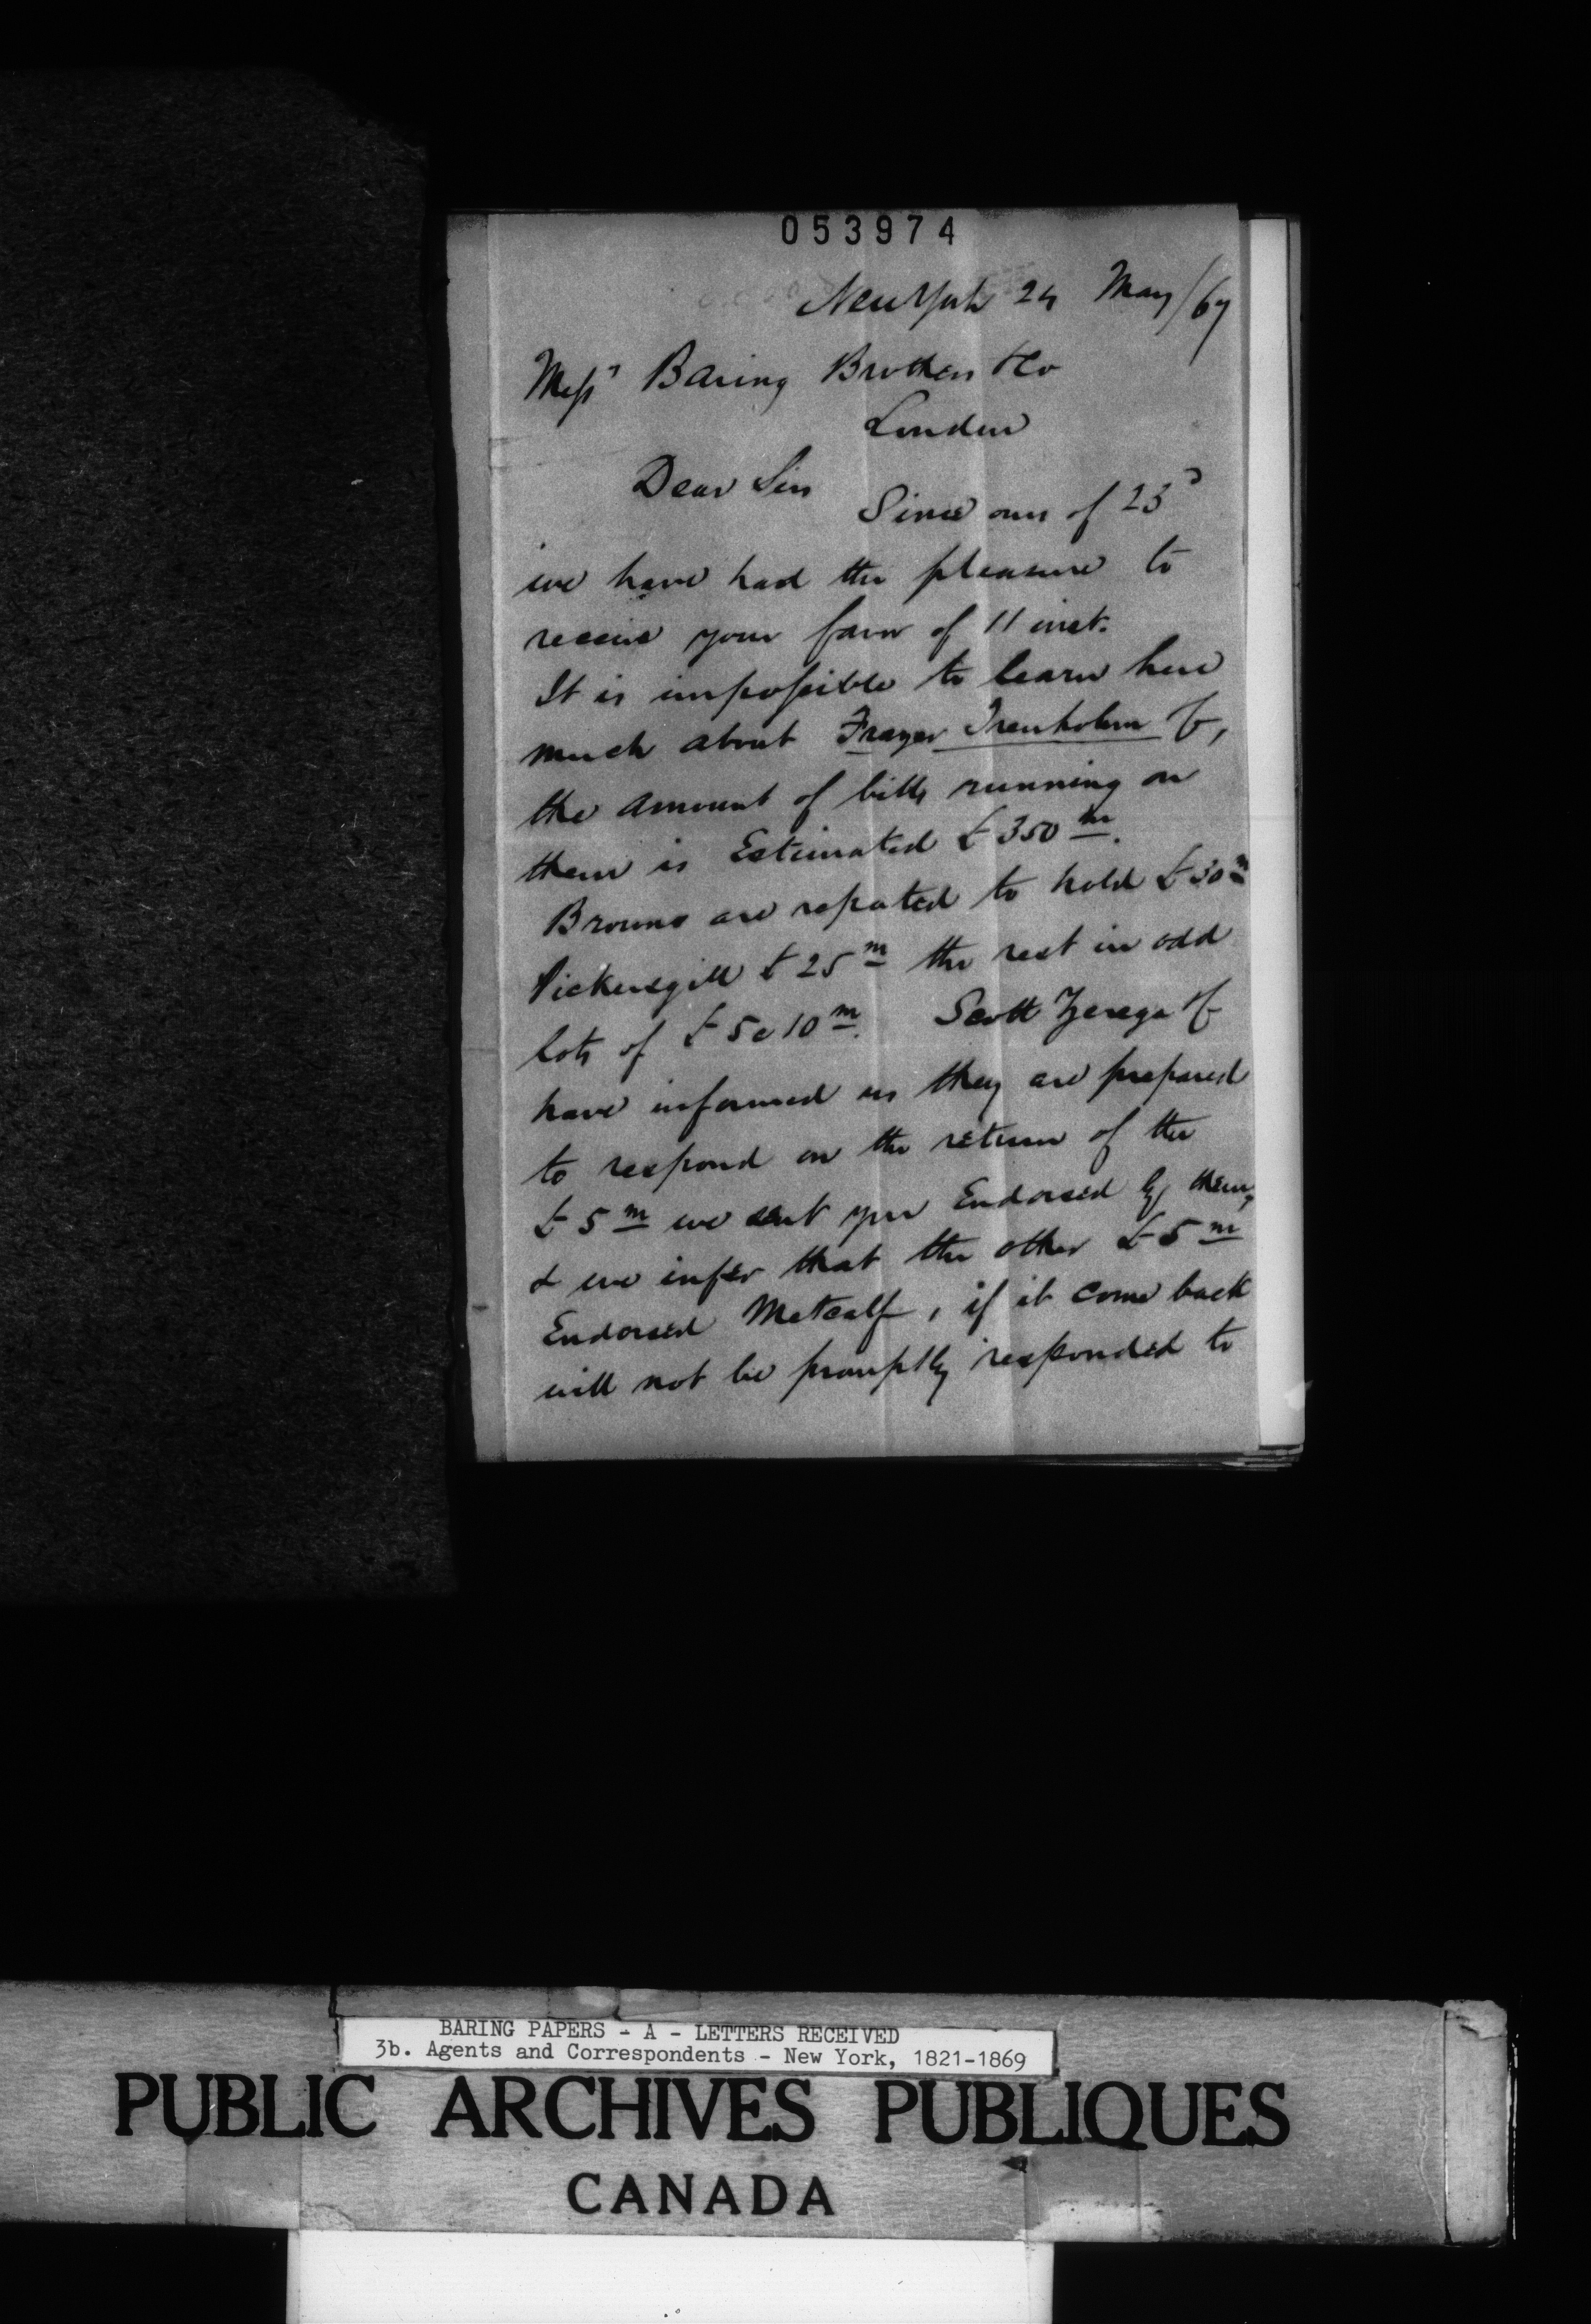 053974
New York 24 May/67
Messrs Baring Brothers & Co
London
Dear Sirs
Since ours of 23d
we have had the pleasure to
receive your favor of 11 inst.
It is impossible to learn here
much about Frazer Trenholm &c,
the amount of bills running on
them is Estimated £350m.
Browns are reputed to hold £30m
Pickersgill £25m the rest in odd
lots of £5 @ 10m. Scott Zerega &c
have informed us they are prepared
to respond on the return of the
£5m we sent you Endorsed by them,
& we infer that the other £5m
Endorsed Metcalf, if it come back
will not be promptly responded to
BARING PAPERS - A - LETTERS RECEIVED
3b. Agents and Correspondents - New York, 1821-1869
PUBLIC ARCHIVES PUBLIQUES
CANADA